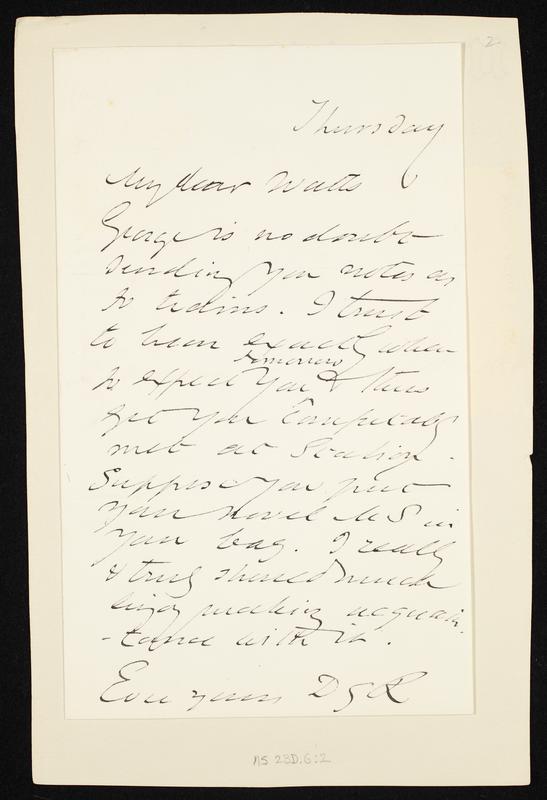 2
Thursday
My dear Watts
George is no doubt
sending you notes as
to trains. I trust
to learn exactly when
tomorrow
to expect you & thus
get you comfortably
met at Station.
Suppose you put
your novel MS in
your bag. I really
& truly should much
enjoy making acquain-
-tance with it.
Ever yours DGR
MS 23D.6:2